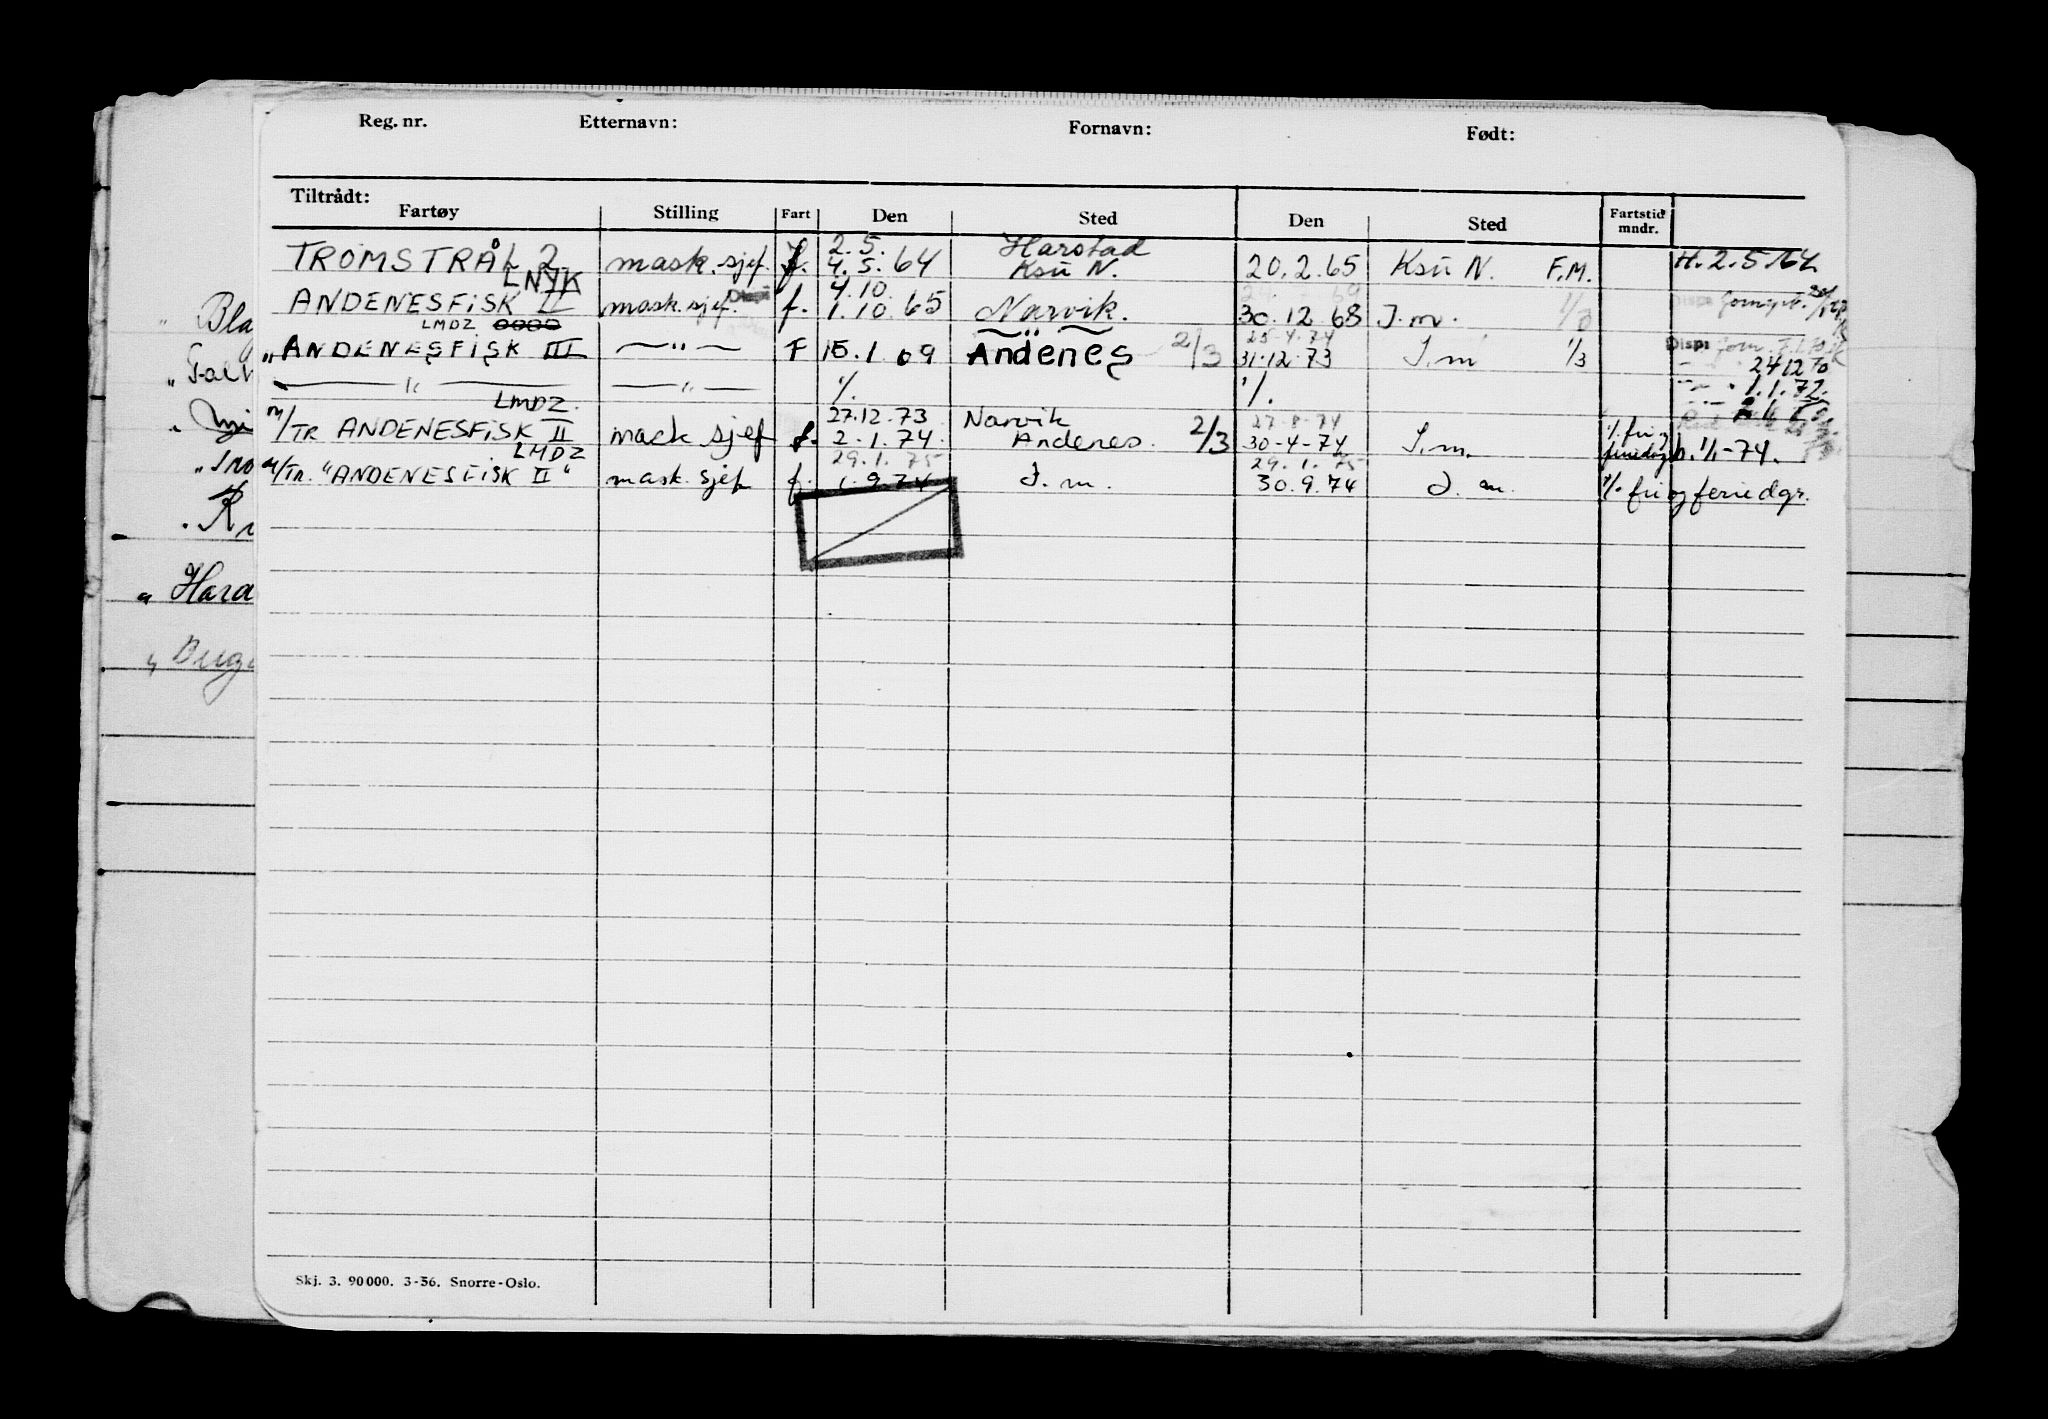 Reg. nr. Etternavn: Fornavn: Født:
Tiltrådt:
Fartøy Stilling Fart Den Sted Den Sted Fartstid mndr.
2.5. Harstad
TROMSTRÅL 2 mask. sjef. f. 4.5.64 Ksu N. 20.2.65 Ksu N. F.M. H. 2.5.64
LNYK 4.10
ANDENESFISK II mask. sjef. f. 1.10.65 Narvik. 30.12.68 J.m.
LMDZ 25.4.74
"ANDENESFISK III —"— F 15.1.69 Andenes 2/3 31.12.73 J.m 1/3 Dispi
—"— —"— 2412 70
1.1.72.
LMDZ. 27.12.73 Narvik 27-8-74
M/TR ANDENESFISK II mask sjef f. 2.1.74. Andenes. 2/3 30-4-74 J.m. ./. fri og feriedg b. 1/1-74.
LMDZ 29.1.75 29.1.75
M/TR. "ANDENESFISK II" mask. sjef f. 1.9.74 J.m. 30.9.74 J.m. ./. fri og feriedgr.
Bla
Hara
Skj. 3. 90000. 3-56. Snorre-Oslo.